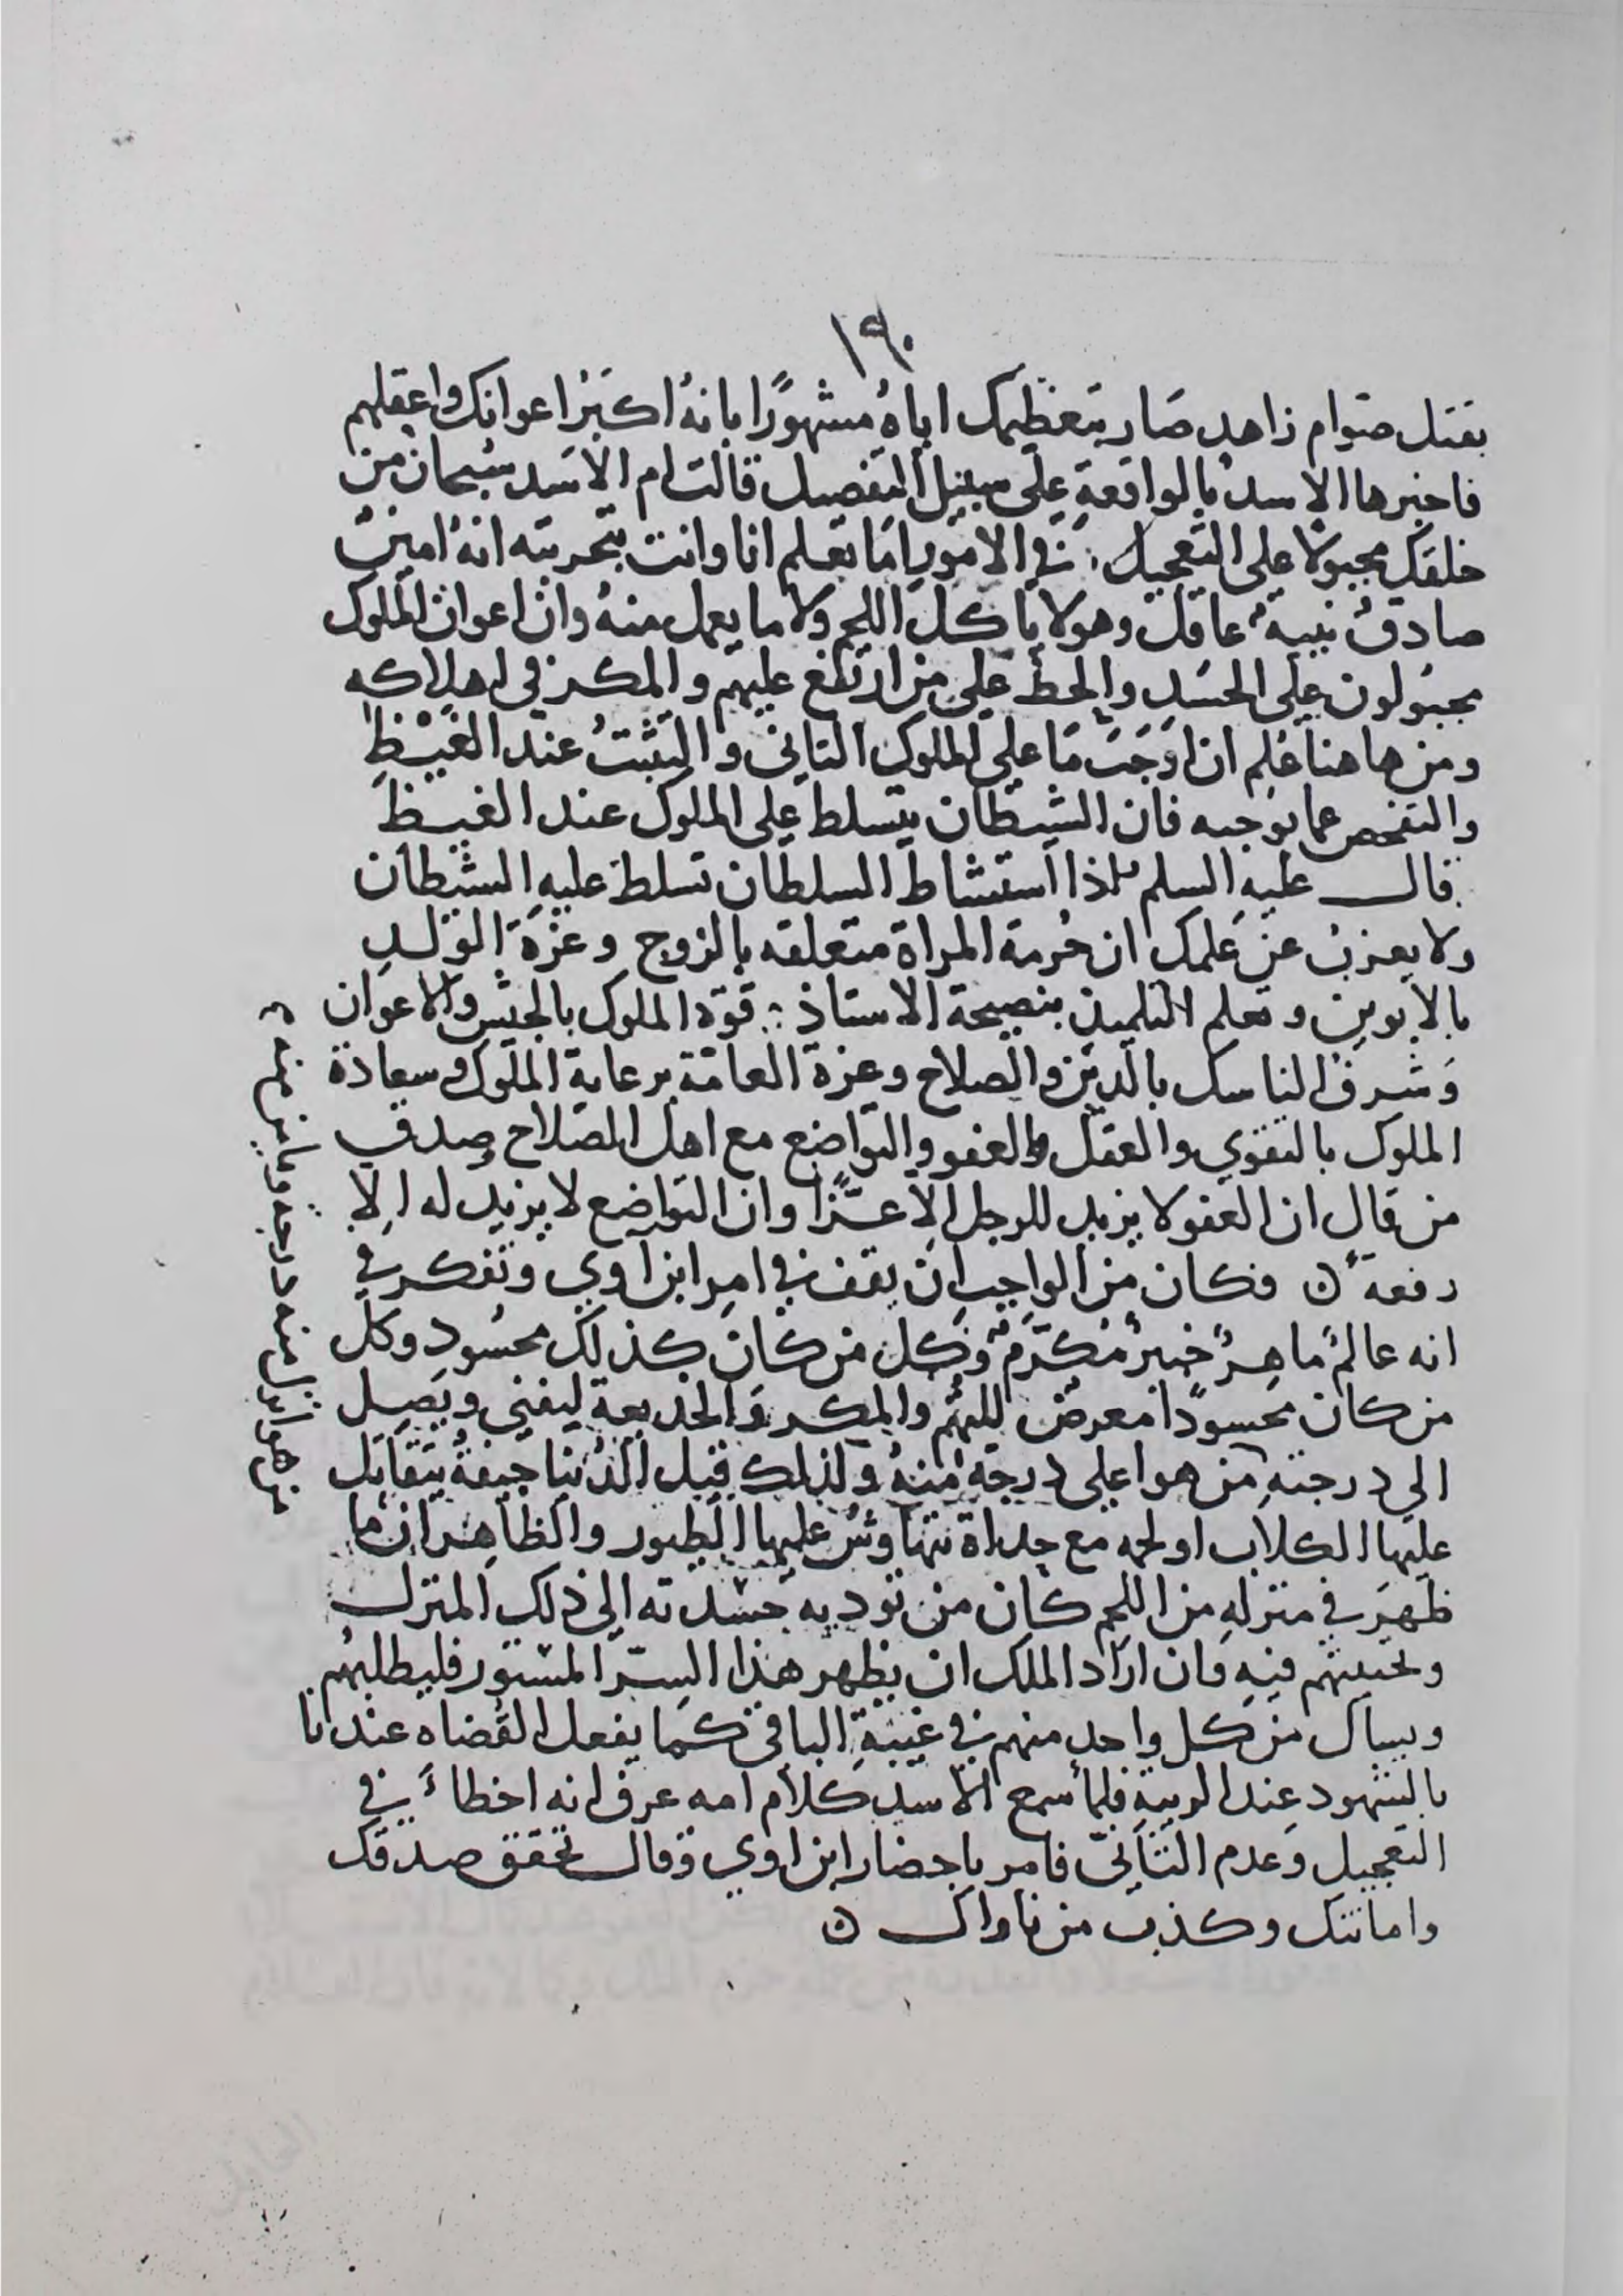 ١٩٠
بقتل صوام زاهد صار بتعظيمك اياه مشهورًا بانهُ اكبَرُ اعوانك واعقلهم
فاخبرها الاسدُ بالواقعةِ على سبيل التفصيل قالت ام الاسَد سُبحان من
خلقك مجبولا على التعجيل في الامور امَا تعلم انا وانت بتجربته انهُ امينٌ
صادقٌ نبيهٌ عاقل وهو لا ياكل اللحم ولا ما يعمل منهُ وان اعوان الملوك
مجبَولون على الحسَدِ والحط على من ارتفع عليهم والمكر في اهلاكه
ومن هاهنا عُلِم ان اوجَبَ مَا على الملوك التانى والتثبتُ عند الغيْظِ
والتفحص عما يوجبه فان الشيطان يتسلط على الملوك عند الغيظ
قال عليه السلم اذا استشاط السلطان تسلط عليه الشيطان
ولا يعزب عن علمك ان حُرمة المراة متعلقه بالزوج وعزة الولدِ
بالابوين وتعلم التلميذ بنصيحة الاستاذ ∴ قوة الملوك بالجيش والاعوان
وَشرف الناسك بالدين والصلاح وعزة العامة برعاية الملوك وسعادة
الملوك بالتقوي والعقل والعفو والتواضع مع اهل الصلاح وصدق
من قال ان العفو لا يزيد للرجل الا عزًّا وان التواضع لا يزيد له الا
رفعة ٥ فكان من الواجب ان يقف في امر ابن اوي وتفكر في
انه عالمٌ ماهرٌ خبيرٌ مُكرّمٌ وكل من كان كذلك محسُود وكل
من كان محسودًا معرض للهم والمكر والخديعة ليفنى ويَصِل
الي درجته من هو اعلى درجة منهُ ولذلك قيل الدُنيا جيفةٌ يتقاتل
عليها الكلاب او لحمه مع حداة تتهاوش عليها الطيور والظاهر ان ما
ظهرَ في منزله من اللحم كان من توديه حسدته الى ذلك المنزل
وتحببتهم فيه فان اراد الملك ان يظهر هذا السِرّ المستور فليطلبهُم
ويسال من كل واحد منهم في غيبة الباقي كما يفعل القضاه عندنا
بالشهود عند الريبة فلما سمع الاسد كلام امه عرف انه اخطاء في
التعجيل وَعدم التاَنيّ فامر باحضار ابن اوي وقال تحقق صدقك
وامانتك وكذب من ناواك ٥